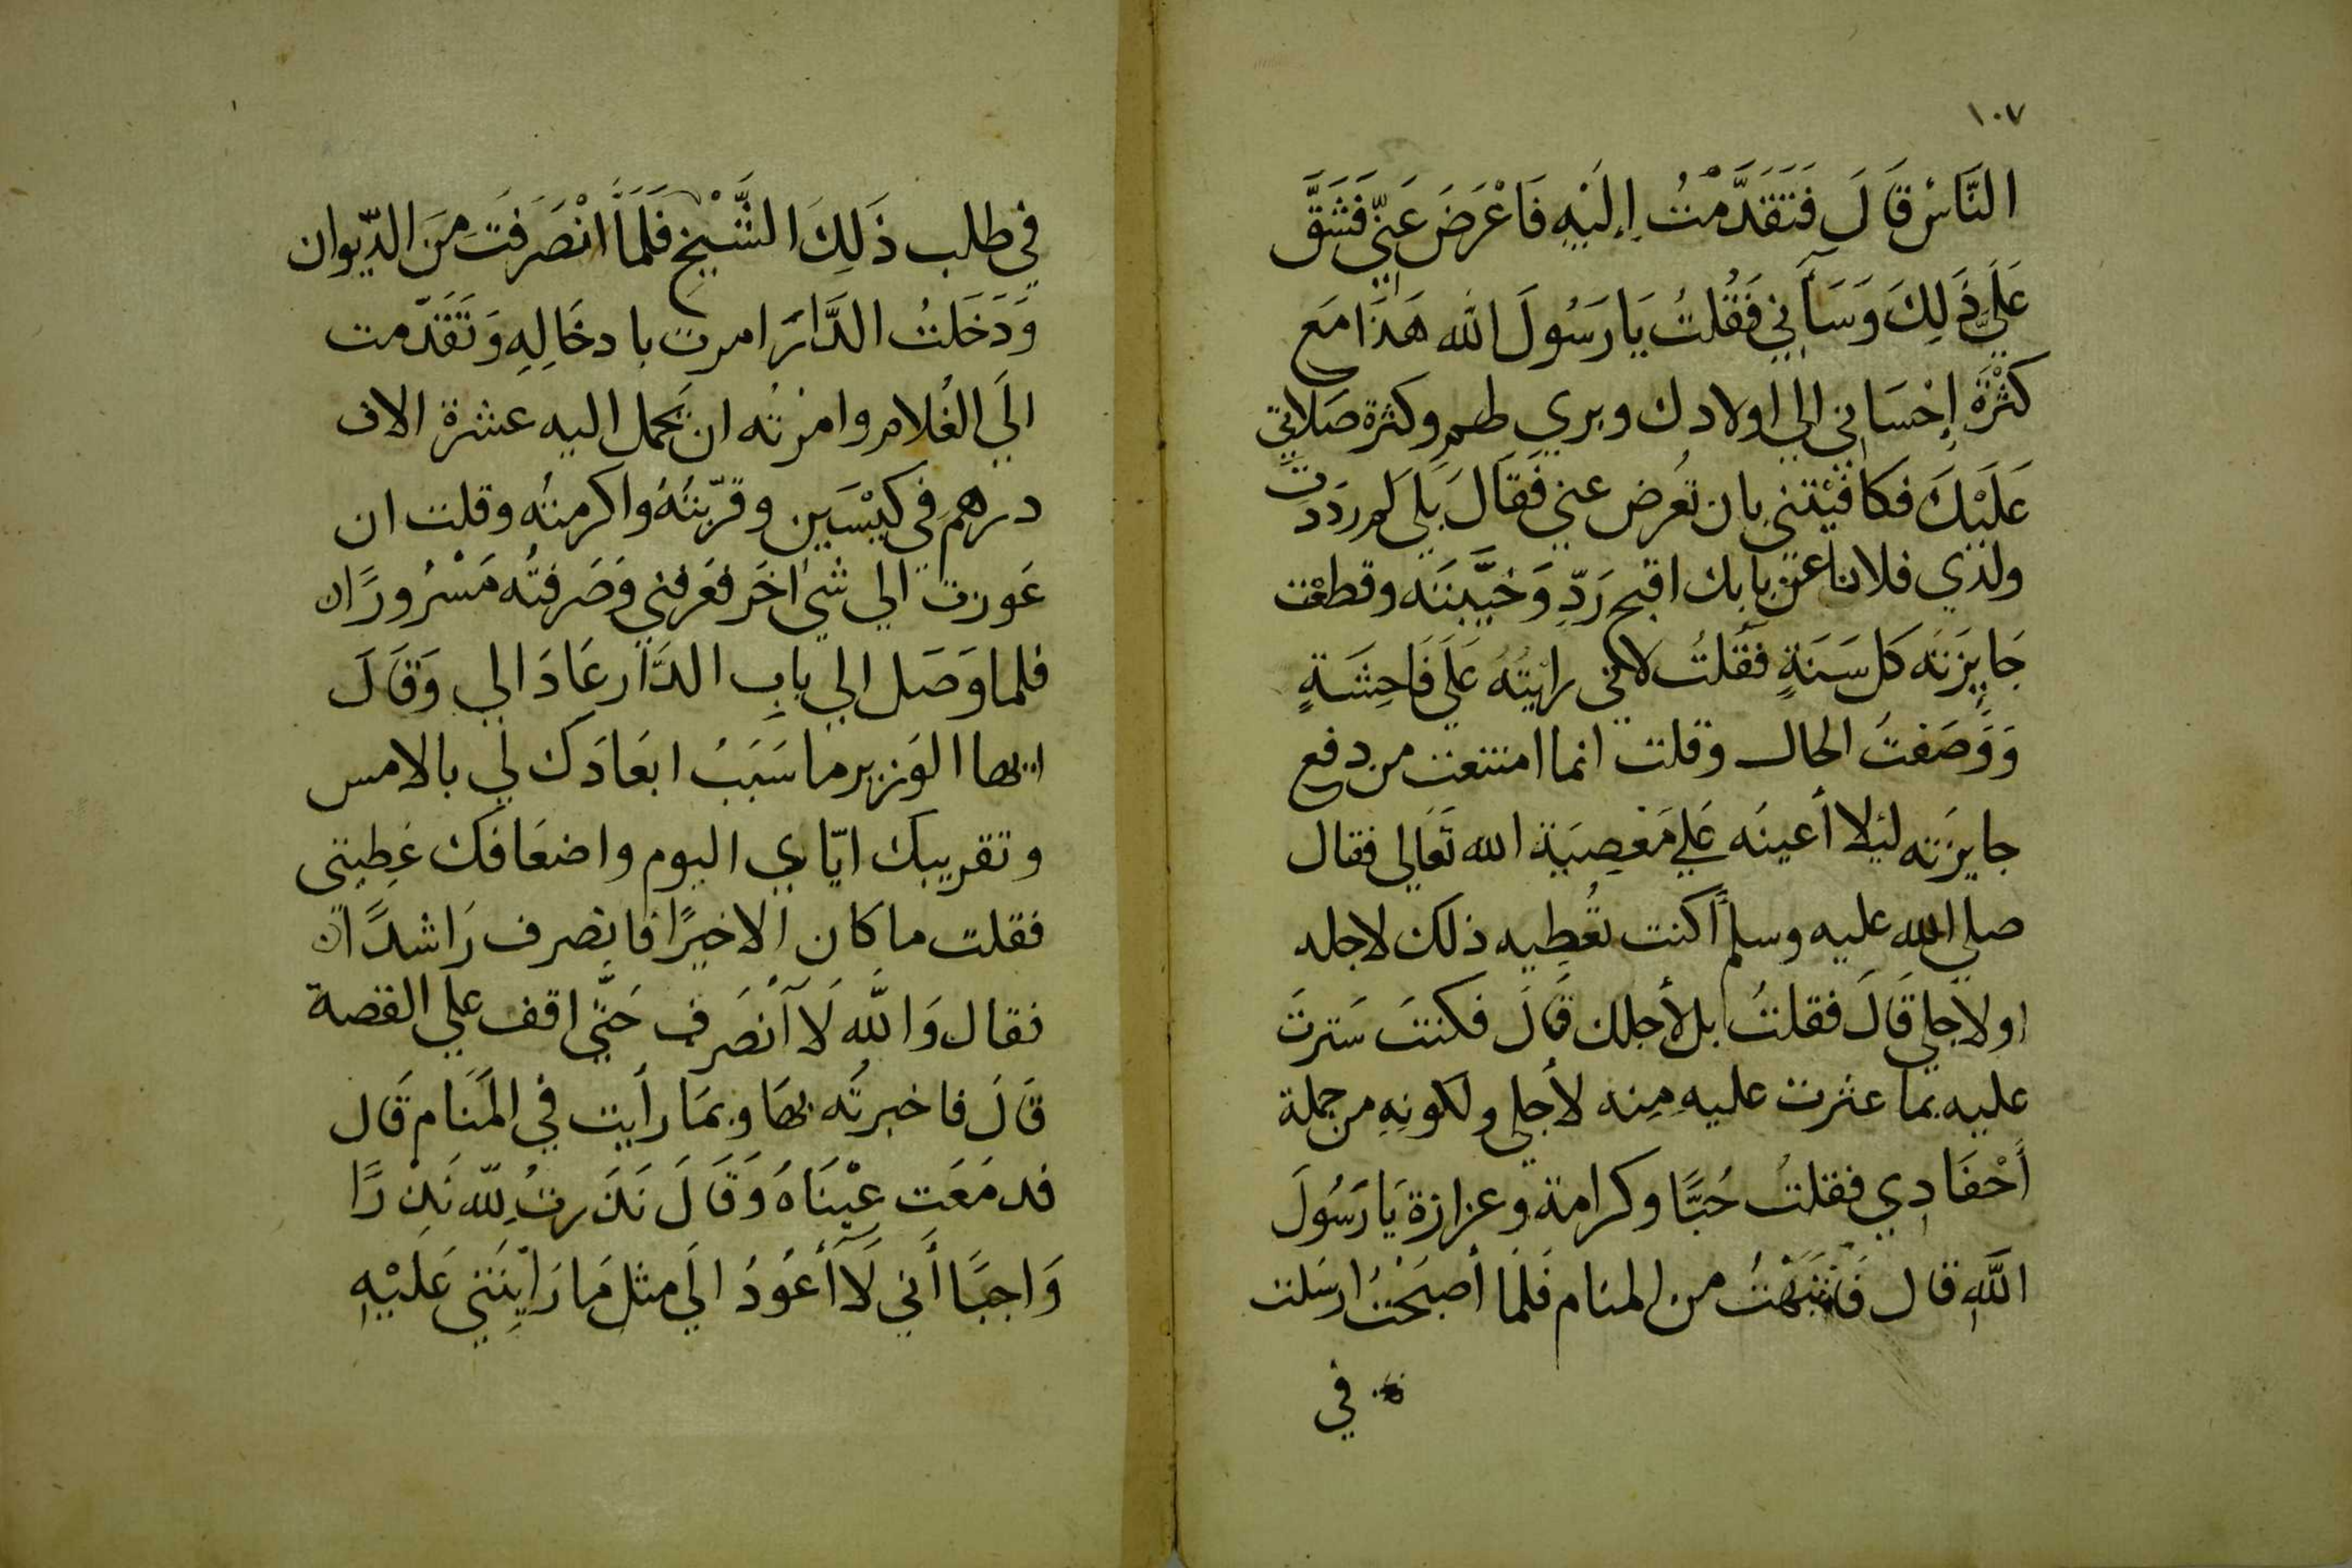 ١٠٧
النَّاسْ قَالَ فَتَقَدَّمْتُ إِلَيْهِ فَاعْرَضَ عَنِّي فَشَقَّ
عَلَيَّ ذَلِكَ وَسَأَنِي فَقُلتُ يَا رَسُولَ الله هَذَا مَع
كَثْرَةِ إِحْسَانِي الي اولادك وبري طهمِ وكثرة صَلاتِي
عَلَيْكَ فكافيْتني بان تُعرض عني فَقَالَ بَلَي لمِ رَدَدتَ
ولدي فلانا عن بابك اقبح رَدّ وَخَيَّبتَه وقطعْت
جَايِزَتَه كل سَنَةٍ فقُلتُ لاني رايتُهُ عَلَي فَاحِشَةٍ
وَوَصَفتُ الحال وقلت انما امتنعت من دفع
جايزَته ليَلا أعينَه عَلي مَعصِيَة الله تَعَالي فقال
صلي الله عليه وسلم أكنت تُعطِيه ذلك لاجله
اولاجلي قَالَ فقلتُ بل لأجلك قَالَ فكنتَ سَترتَ
عليه بما عثرت عليه مِنه لأجلي ولكونِهِ من جملة
أحْفَادِي فقلتُ حُبًّا وكرامة وعزازة يَا رَسُولَ
اللَّهِ قال فَانتبَهتُ من المنام فَلَما أصبَحْتُ ارسَلت
في
في طلب ذَلِكَ الشَّيْخِ فَلَمَّا انْصَرَفتَ مِنَ الدّيوان
وَدَخَلتُ الدَّارَ امرت بادخَالِهِ وَتَقَدّمت
الَي الغُلام وامرْتُه ان يَحمل اليه عشرة الاف
درهمِ في كيْسَين وقرّبتُهُ واكرمتُه وقلت ان
عَوزت الي شي اخَر فعَرفني وَصَرفتُه مَسْرُورًا
فلما وَصَل الي بابِ الدَّار عَادَ الي وَقَالَ
ايها الوَزير ما سَبَبُ ابعَادَك لي بالامس
وتقريبك ايّاي اليوم واضعَافَك عَطِيتي
فقلت ما كان الاخيرًا فانصرف رَاشدًا
فقال وَاللَّه لَا أنصَرف حَتَّي اقف علي القصة
قَالَ فاخبرتُه بهَا وبمَا رأيت في المَنَام قَال
فدمَعَت عيْنَاهُ وَقَالَ نَذَرتُ لِلّه نَذرًا
وَاجبًا أني لَا أَعُودُ الَي مثل مَا رَأيتَني عَليْهِ